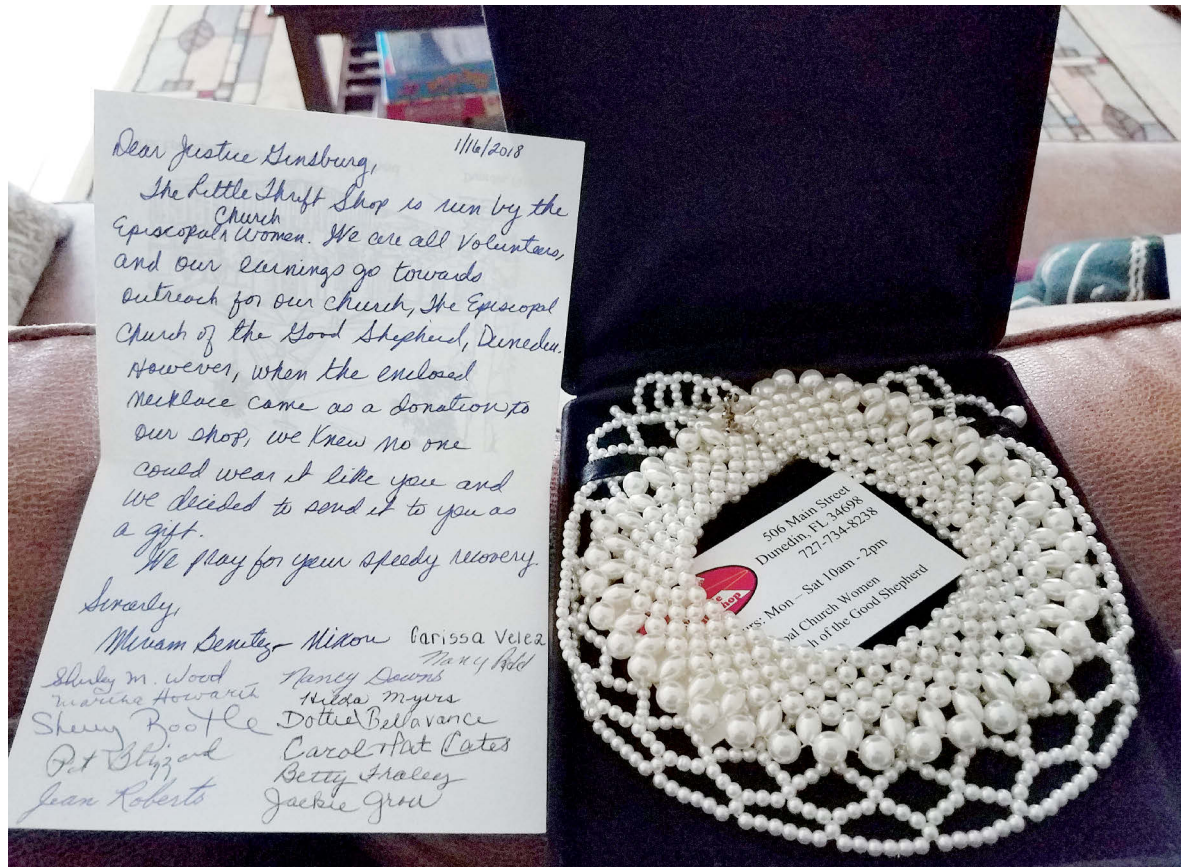 1/16/2018
Dear Justice Ginsburg,
The Little Thrift Shop is run by the
Church
Episcopal Women. We are all Volunteers,
and our earnings go towards
outreach for our church, The Episcopal
Church of the Good Shepherd, Dunedin.
However, when the enclosed
necklace came as a donation to
our shop, we knew no one
could wear it like you and
we decided to send it to you as
a gift.
We pray for your speedy recovery.
Sincerely,
Miriam Benitez-Nixon Carissa Velez
Nancy
Shirley M. Wood Nancy Downs
Martha Howarth Hilda Myers
Sherry Bootle Dottie Bellavance
Pat Blizzard Carol Pat Cates
Betty Fraley
Jean Roberts Jackie Grow
506 Main Street
Dunedin, FL 34698
727-734-8238
urs: Mon – Sat 10am - 2pm
pal Church Women
h of the Good Shepherd